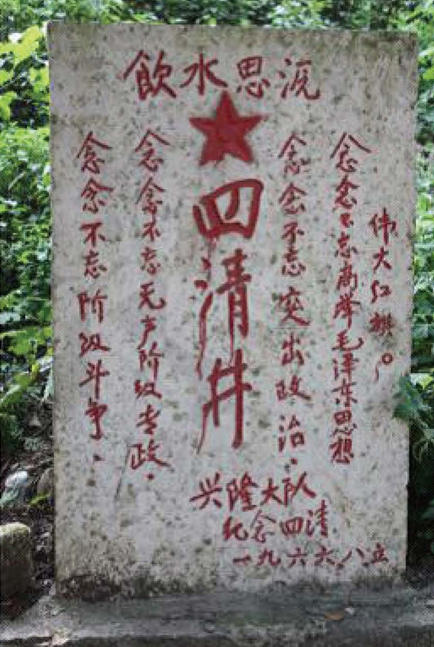 飲水思沅
念念不忘高举毛泽东思想
伟大红旗。
念念不忘突出政治。
四清井
念念不忘无产阶级专政.
念念不忘阶级斗争.
兴隆大队
纪念四清
一九六六.八.立